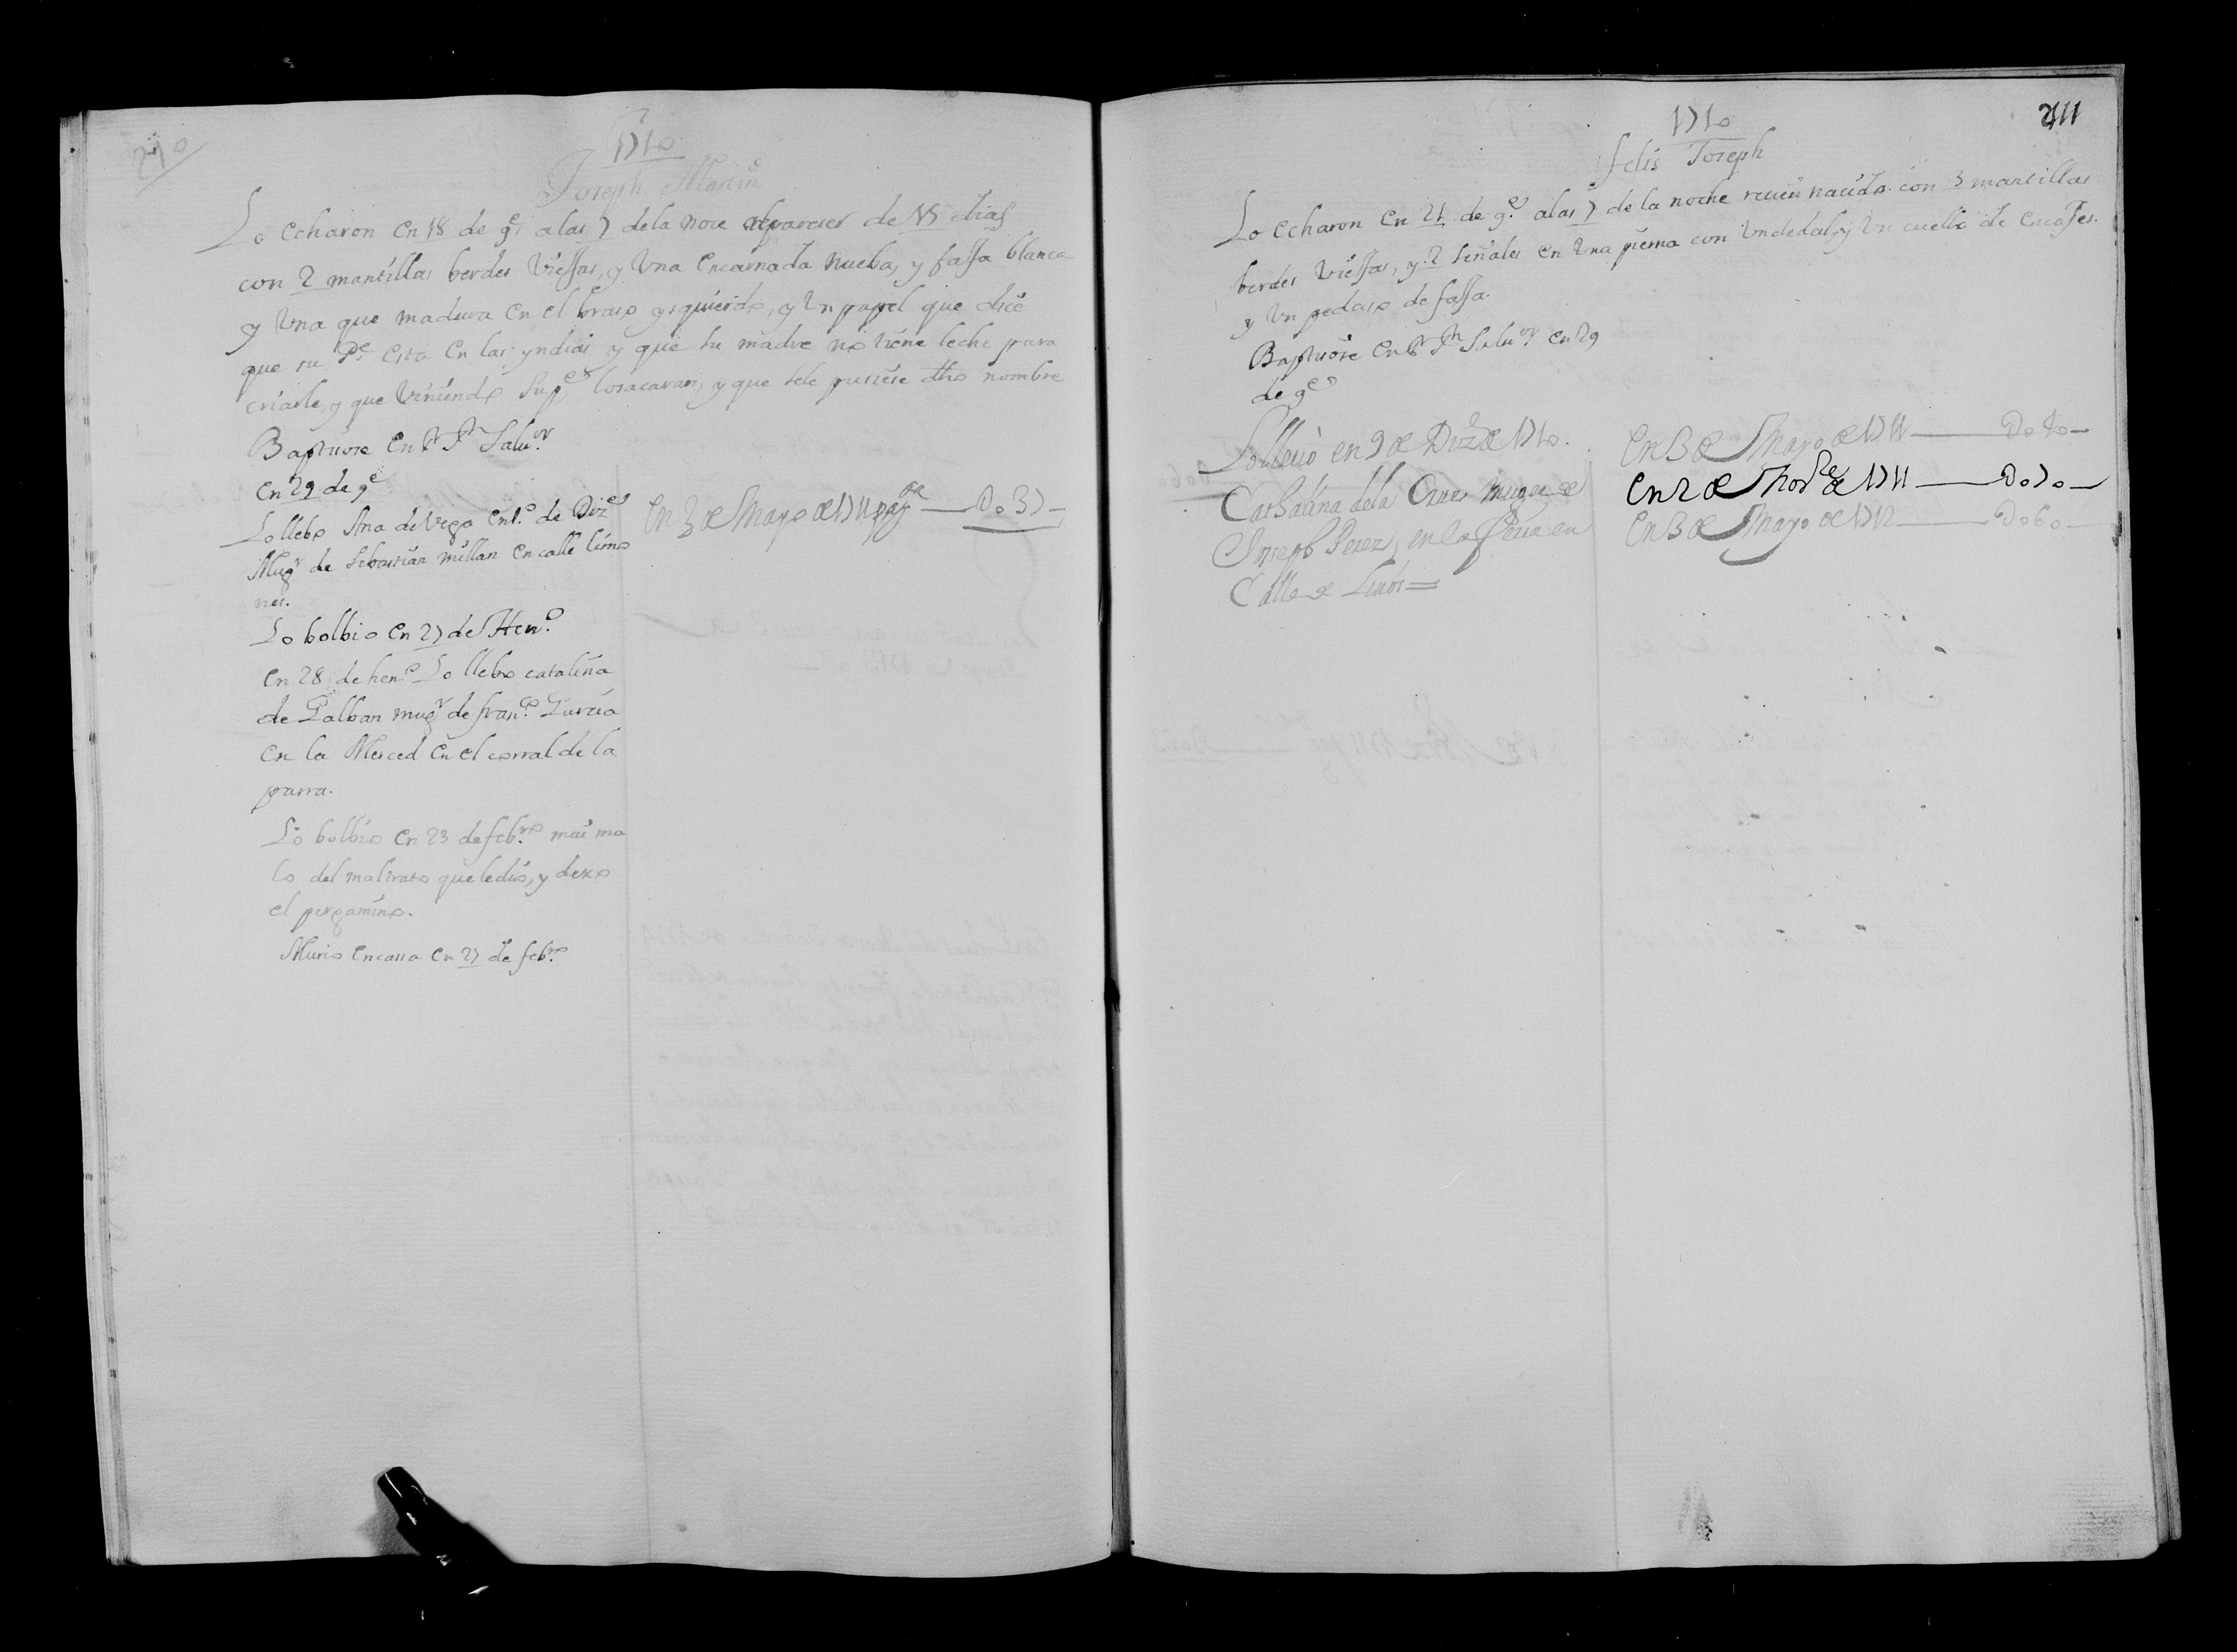 210
1710
Joseph Martin
Lo echaron en 18 de 9e. a las 7 de la noce al pareser de 15 dias
con 2 mantillas berdes viejas, y una encarnada nueba, y faja blanca
y una que madura en el braso ysquierdo, y un papel que dice
que su Pe. esta en las yndias y que su madre no tiene leche para
criarle, y que viniendo su pe. lo sacaran, y que se le pusiese dho nombre
Baptisose en Sr. Sn. Salvor.
en 29 de 9e
Lo llebo Ana de Vega en 1º de Dize
Mugr de Sebastian millan en calle limo
nes.
Lo bolbio en 27 de Heno.
en 28 de heno. Lo llebo catalina
de Galban mugr de franco. Garcia
en la Merced en el corral de la
parra.
Lo bolbio en 23 de febro. mui ma
lo del maltrato que le dio, y dexo
el pergamino.
Murio en casa en 27 de febro.
en 3 de Mayo de 1711 pague — Do37 —
211
1710
felis Joseph
Lo echaron en 21 de 9e. a las 7 de la noche recien nacido con 3 mantillas
berdes viejas, y 2 señales en una pierna con un dedal, y un cuello de encajes.
y un pedaso de faja.
Baptisose en Sr. Sn. Salvor en 29
de 9e
Lo lleuò en 9 de Dize de 1710.
Cathalina de la Cruz muger de
Joseph Perez, en la feria en
Calle de Linos =
En 3 de Mayo de 1711 — Do40 —
En 2 de Nove de 1711 — Do70 —
En 3 de Mayo de 1712 — Do60 —